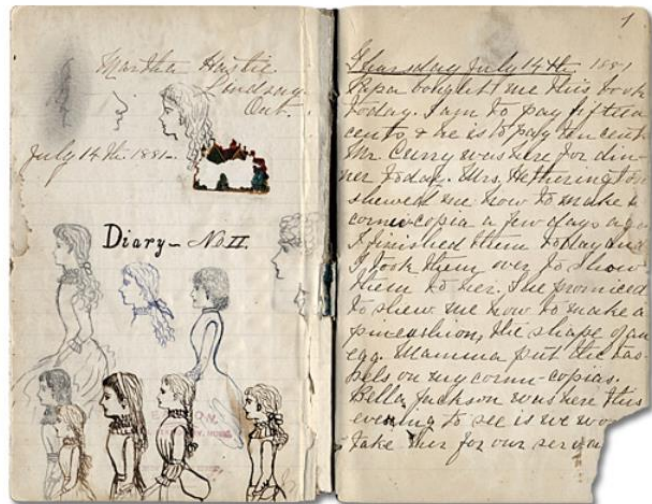 Martha Hastie
Lindsay
Ont.
July 14th 1881-
Diary- No II.
1
Thursday July 14th 1881
Papa bought me this book
today. I am to pay fifteen
cents & he is to pay ten cents
Mr. Curry was here for din-
ner today. Mrs. Hetherington
shewed me how to make a
cornicopia a few days ago
I finished them today and
I took them over to show
them to her. She promiced
to shew me how to make a
pincushion, the shape of an
egg. Mamma put the tas-
sels on my cornu-copias.
Bella Jackson was here this
evening to see is we wo
take her for our servan